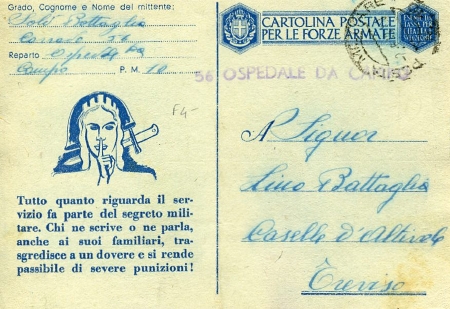 Grado, Cognome e Nome del mittente:
Sold Battaglia
Reparto Ospedale da
Campo P. M. 10
CARTOLINA POSTALE
PER LE FORZE ARMATE
56 OSPEDALE DA CAMPO
F4-
Tutto quanto riguarda il ser-
vizio fa parte del segreto mili-
tare. Chi ne scrive o ne parla,
anche ai suoi familiari, tra-
sgredisce a un dovere e si rende
passibile di severe punizioni!
Al Signor
Lino Battaglia
Caselle d'Altivole
Treviso